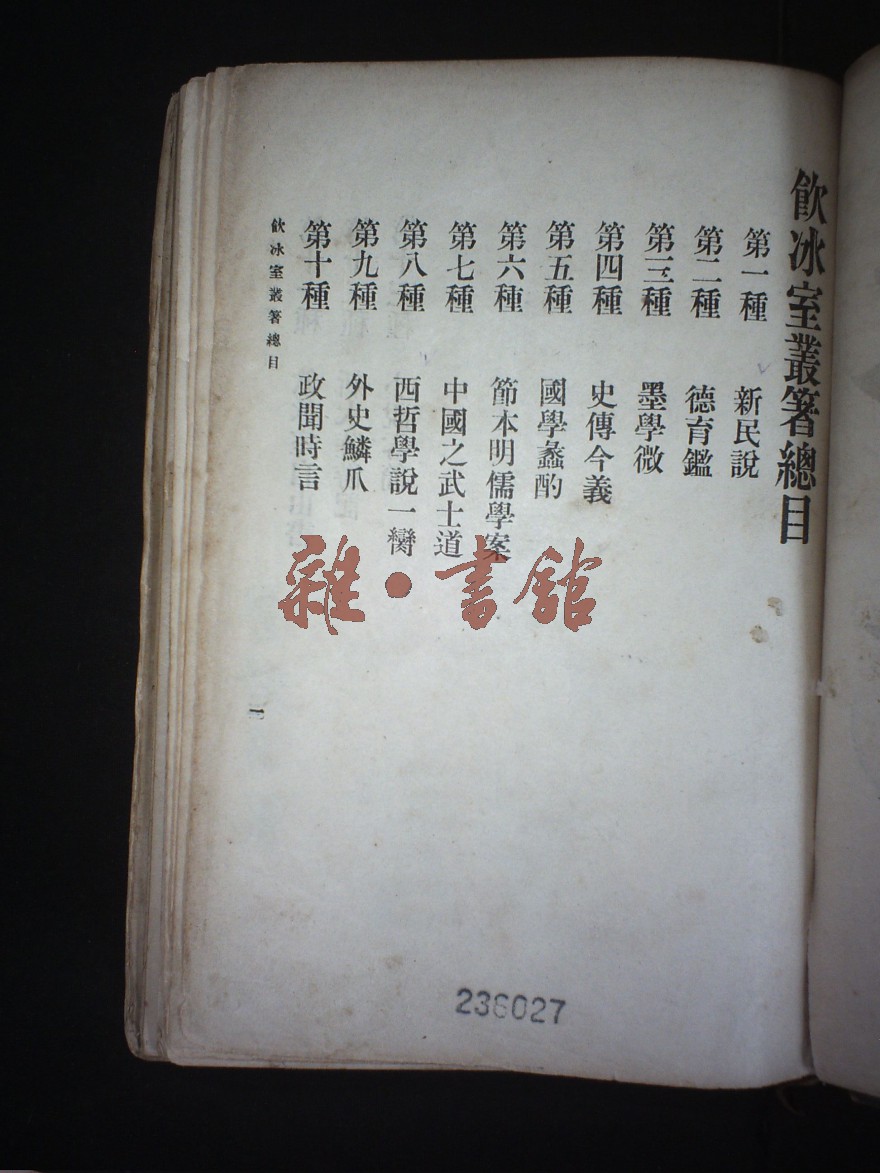 飮冰室叢箸總目
第一種　新民說
第二種　德育鑑
第三種　墨學微
第四種　史傳今義
第五種　國學蠡酌
第六種　節本明儒學案
第七種　中國之武士道
第八種　西哲學說一臠
第九種　外史鱗爪
第十種　政聞時言
飮冰室叢箸總目
一
雜·書館
236027